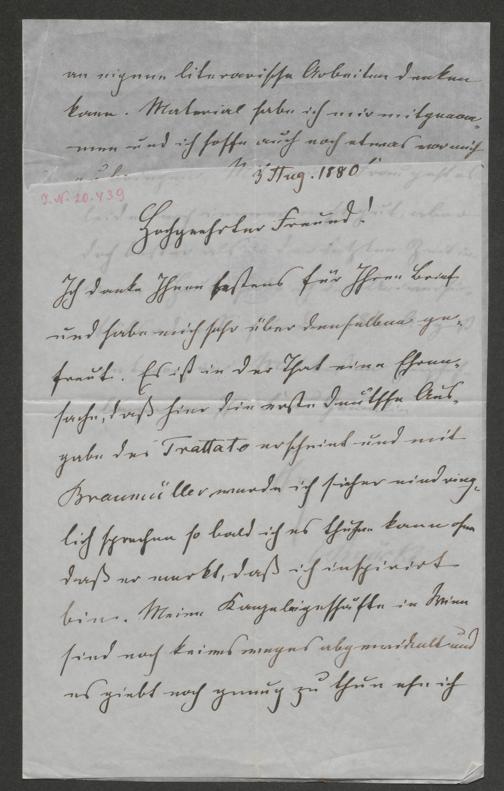 an eigene literarische Arbeiten denken
kann. Material habe ich mir mitgenom-
men und ich hoffe auch noch etwas
3 Aug. 1880
I.N. 20.439
Hochgeehrter Freund!
Ich danke Ihnen bestens für Ihren Brief
und habe mich sehr über denselben ge-
freut. Es ist in der That eine Ehren-
sache, daß hier die erste deutsche Aus-
gabe des Trattato erscheint und mit
Braumüller werde ich sicher eindring-
lich sprechen so bald ich es thuhn kann ohne
daß er merkt, daß ich inspirirt
bin. Meine Kanzleigeschäfte in Wien
sind noch keineswegs abgewickelt und
es giebt noch genug zu thun ehe ich